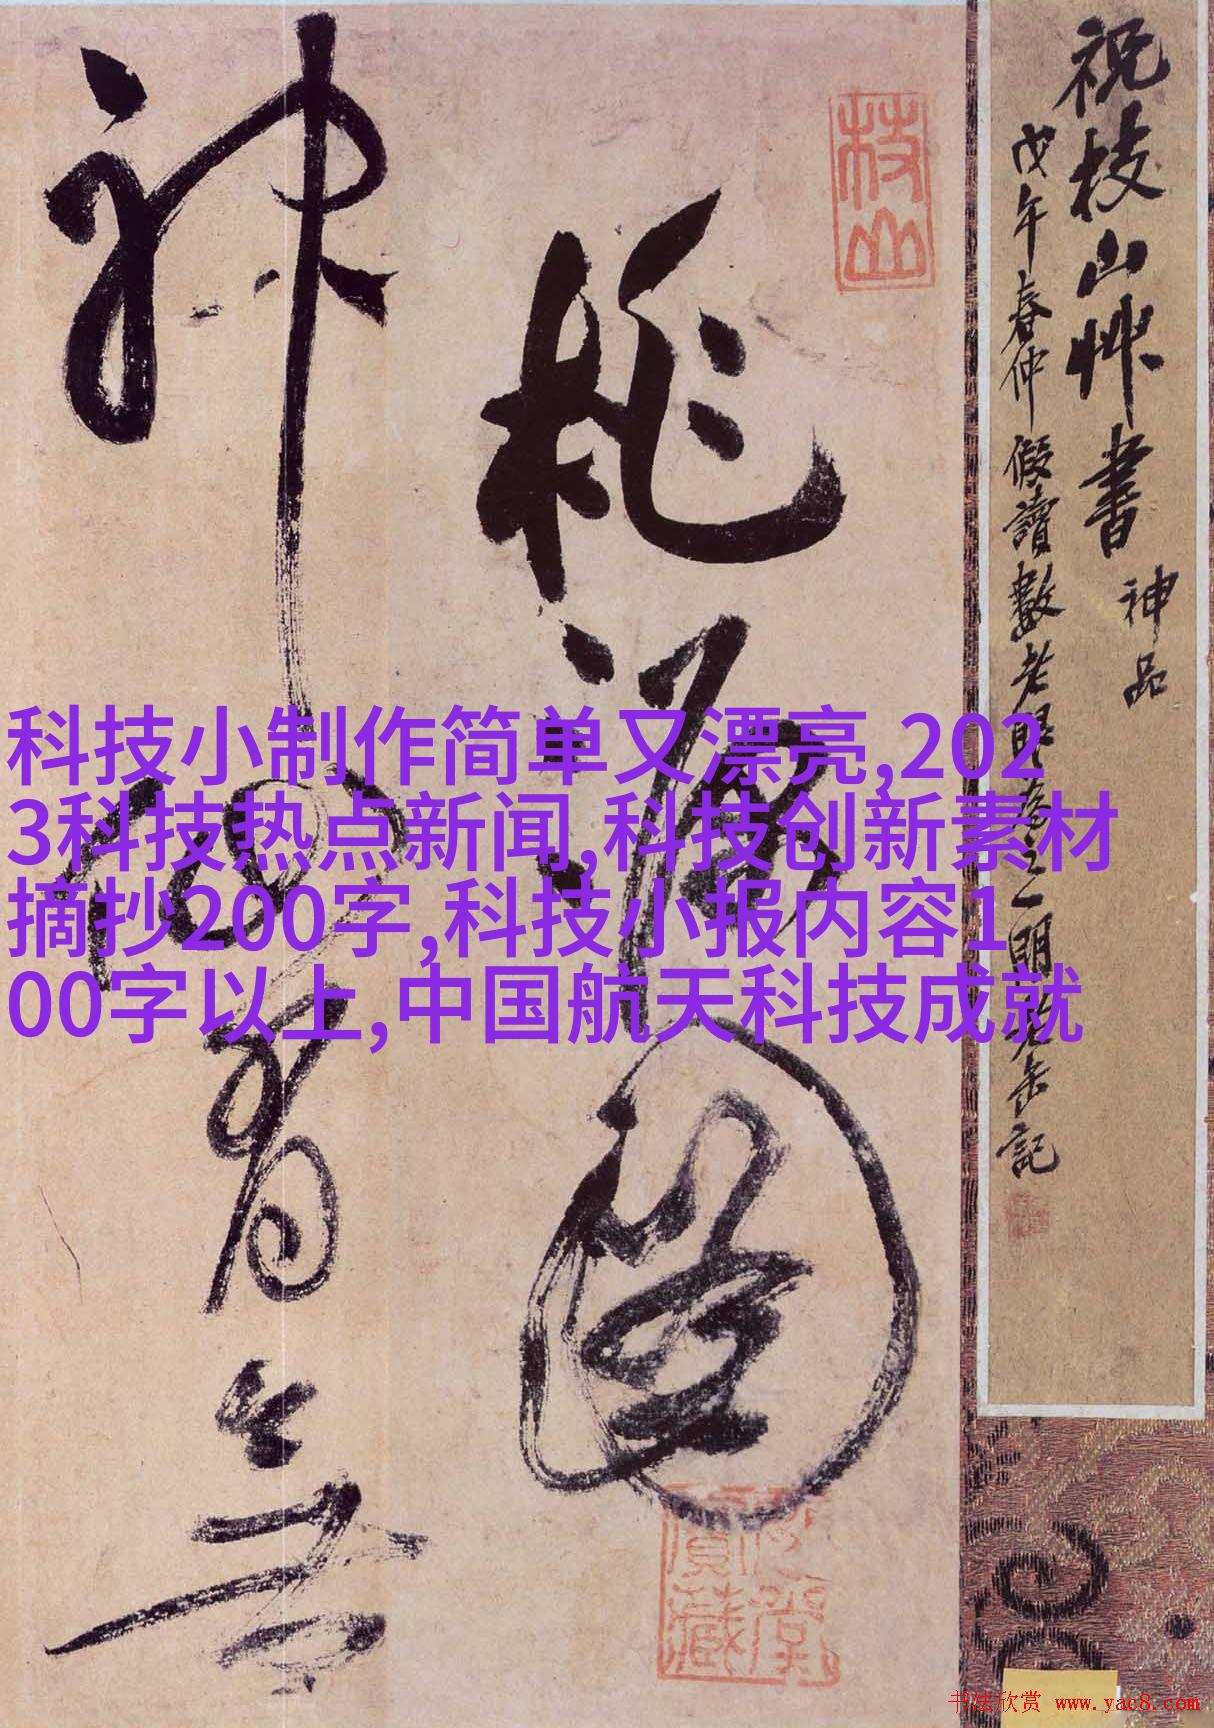 祝枝山艸書 神品
戊午春仲假讀數老眼為之一明 老缶記
枝山
桃源圖
神仙有無
科技小制作简单又漂亮,202
3科技热点新闻,科技创新素材
摘抄200字,科技小报内容1
00字以上,中国航天科技成就
书法欣赏 www.yac8.com